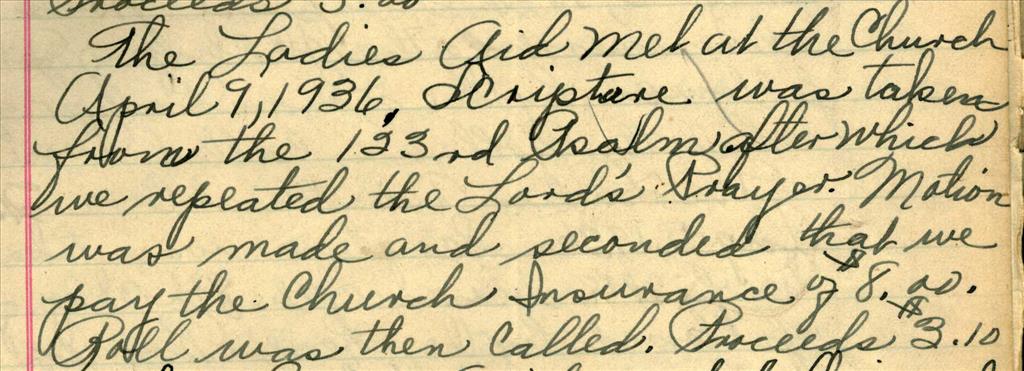 Proceeds 3.00
The Ladies Aid Met at the Church
April 9, 1936. Scripture was taken
from the 133rd Psalm after which
we repeated the Lord's Prayer. Motion
was made and seconded that we
pay the Church Insurance of $8.00.
Roll was then called. Proceeds $3.10